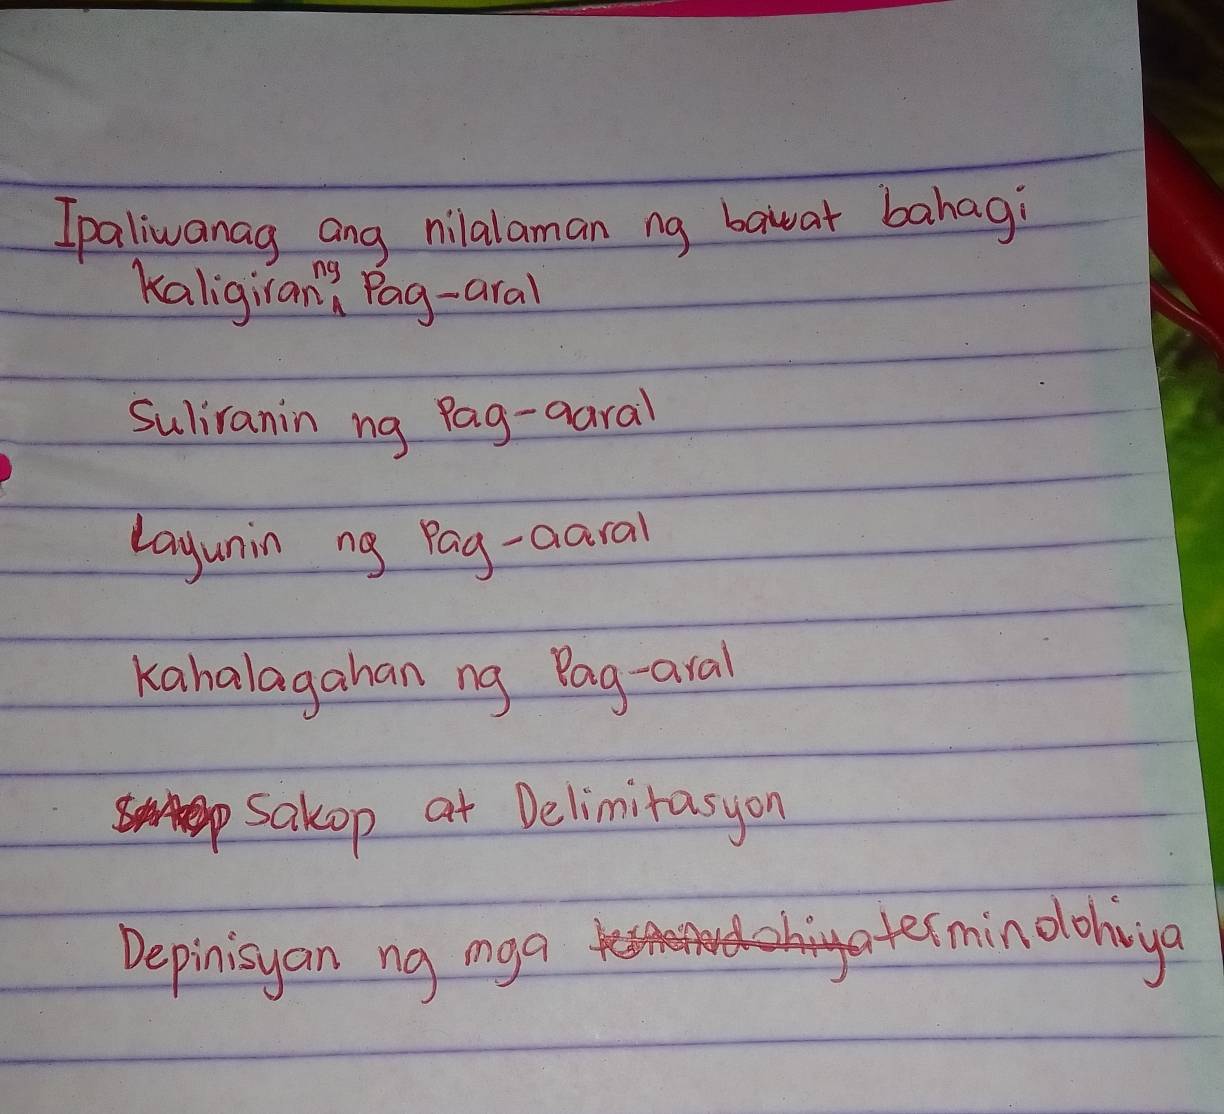 Ipaliwanag ang nilalaman ng bawat bahagi
Kaligiran ng Pag-aral
Suliranin ng Pag-aaral
Layunin ng Pag-aaral
Kahalagahan ng Pag-aral
Sakop at Delimitasyon
Depinisyan ng mga terminolohiya